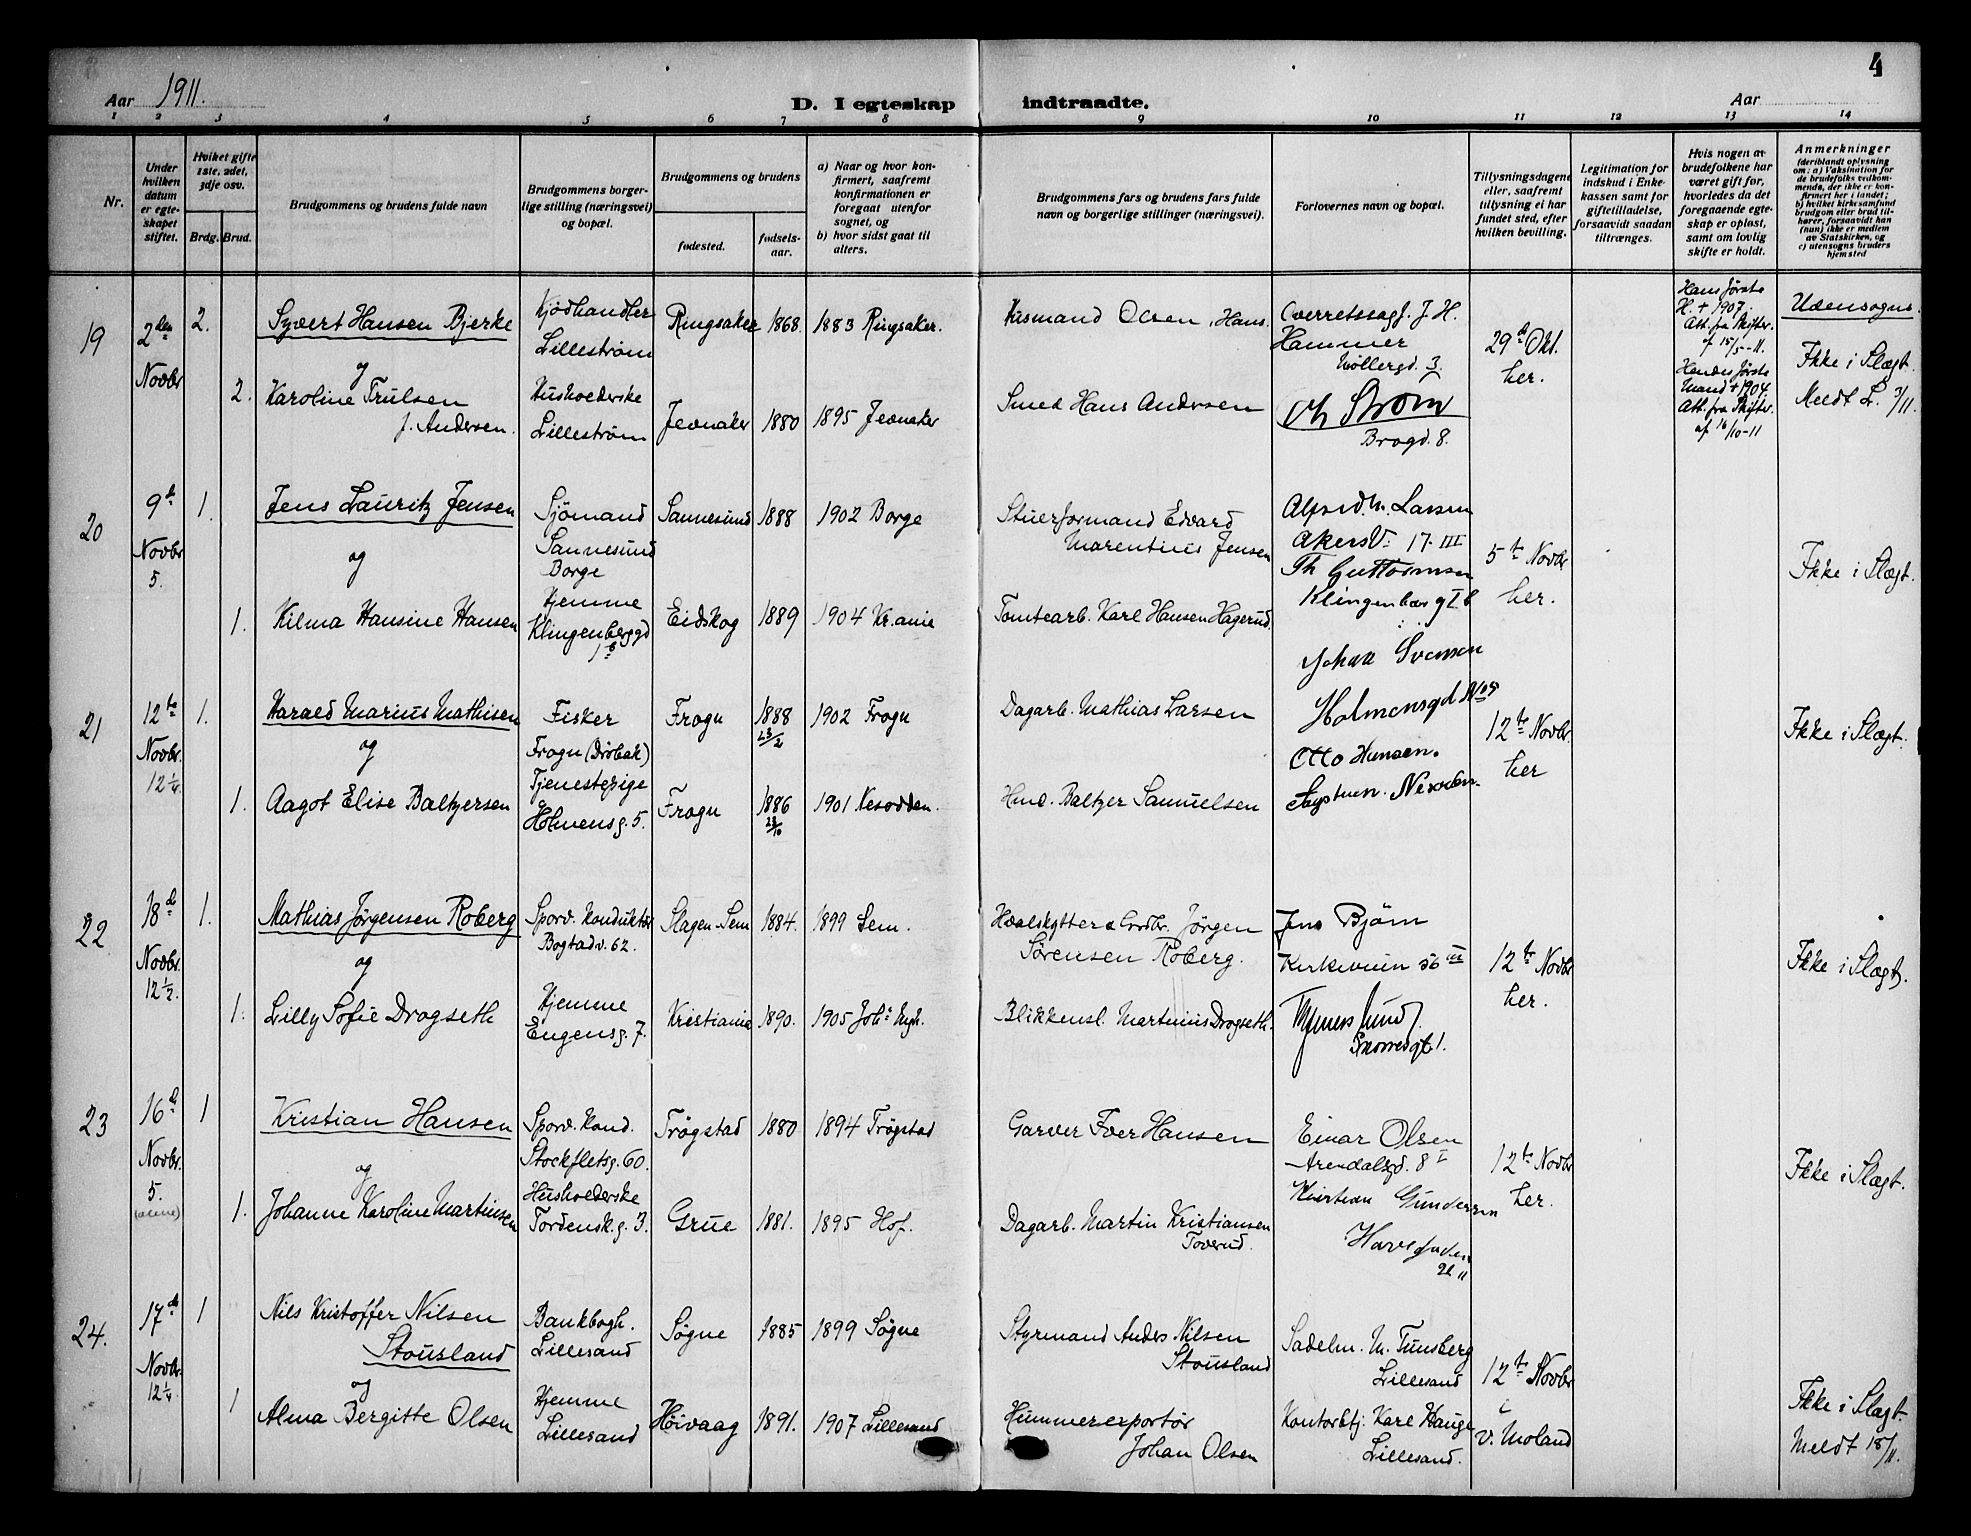 4
Aar 1911.
D. I egteskap indtraadte.
Aar
1 2 3 4 5 6 7 8 9 10 11 12 13 14
Nr.
Under hvilken datum er egteskapet stiftet.
Hvilket gifte 1ste, 2det, 3dje osv.
Brdg. Brud.
Brudgommens og brudens fulde navn
Brudgommens borgerlige stilling (næringsvei) og bopæl.
Brudgommens og brudens
fødested.
fødselsaar.
a) Naar og hvor konfirmert, saafremt konfirmationen er foregaat utenfor sognet, og
b) hvor sidst gaat til alters.
Brudgommens fars og brudens fars fulde navn og borgerlige stillinger (næringsvei).
Forlovernes navn og bopæl.
Tillysningsdagene eller, saafremt tillysning ei har fundet sted, efter hvilken bevilling.
Legitimation for indskud i Enkekassen samt for giftetilladelse, forsaavidt saadan tiltrænges.
Hvis nogen av brudefolkene har været gift før, hvorledes da det foregaaende egteskap er opløst, samt om lovlig skifte er holdt.
Anmerkninger
(deriblandt oplysning om: a) Vaksination for de brudefolks vedkommende, der ikke er konfirmert her i landet; b) hvilket kirkesamfund brudgom eller brud tilhører, forsaavidt han (hun) ikke er medlem av Statskirken, og c) utensogns bruders hjemsted
19
2den Novbr
2.
Syvert Hansen Bjerke
Kjødhandler
Lillestrøm
Ringsaker
1868.
1883 Ringsaker.
Husmand Olsen, Hans.
Overretssagf. J. H. Hammer
Møllergd. 3.
29d Okt.
her.
Hans første
H. + 1907
Att. fra Skifter.
af 15/5-11.
Udensogns.
Ikke i Slægt.
og
2.
Karoline Trulsen
f. Andersen.
Husholderske
Lillestrøm
Jevnaker
1880
1895 Jevnaker
Smed Hans Andersen
Strøm
Brogd. 8.
Hendes første
Mand + 1904
Att. fra Skifter.
af 16/10-11
Meldt L. 3/11.
20
9d Novbr
5.
1.
Jens Lauritz Jensen
Sjømand
Sannesund
Borge
Sannesund
1888
1902 Borge
Stuerformand Edvard
Marentius Jensen
Alfred M. Larsen
Akersv: 17 III
5te Novbr
her.
Ikke i Slægt.
og
1.
Hilma Hansine Hansen
Hjemme
Klingenberggd
1 b
Eidskog
1889
1904 Kr.ania
Tomtearb. Karl Hansen Hagerud.
Th Guttormsen
Klingenberg I b
21
12te Novbr.
12 1/4.
1.
Harald Marius Mathisen
Fisker
Frogn (Drøbak)
Frogn
1888
23/2
1902 Frogn
Dagarb. Mathias Larsen
Johan Svensen
Holmensgd No 5
12te Novbr.
her
Ikke i Slægt.
og
1.
Aagot Elise Baltzersen
Tjenestepige
Holmensg. 5.
Frogn
1886
1901 Nesodden.
Hmd. Baltzer Samuelsen
Otto Hansen.
Nesodden.
22
18d Novbr.
12 1/2.
1.
Mathias Jørgensen Roberg
Sporv. Konduktør
Bogstadv. 62.
Slagen Sem
1884.
1899 Sem.
Hvalskytter & Grdbr. Jørgen
Sørensen Roberg.
Jens Bjørn
Kirkeveien 56 III
12te Novbr
her.
Ikke i Slægt.
og
1.
Lilly Sofie Drogseth
Hjemme
Eugensg. 7.
Kristiania
1890.
1905 Johs Mgh.
Blikkensl. Martinius Drogseth.
Lund
Snorresgt. 1.
23
16d Novbr.
5.
(alene)
1
Kristian Hansen
Sporv. Kond.
Stockfletsg. 60.
Trøgstad
1880
1894 Trøgstad
Garver Iver Hansen
Einar Olsen
Arendalsgd. 8 I
12te Novbr
her.
Ikke i Slægt.
og
1.
Johanne Karoline Martinsen
Husholderske
Tordensk.g. 3.
Grue
1881.
1895 Hof.
Dagarb. Martin Kristiansen
Toverud.
Kristian Gundersen
24.
17de Novbr.
12 1/4.
1
Nils Kristoffer Nilsen
Stousland
Bankbogh.
Lillesand
Søgne
1885
1899 Søgne
Styrmand Anders Nilsen
Stousland
Sadelm. M. Tunsberg
Lillesand
12te Novbr
i
V. Moland
Ikke i Slægt.
Meldt 18/11.
og
1
Alma Bergitte Olsen
Hjemme
Lillesand
Høivaag
1891.
1907 Lillesand
Hummerexportør
Johan Olsen
Kontorbtj. Karl Hauge
Lillesand.